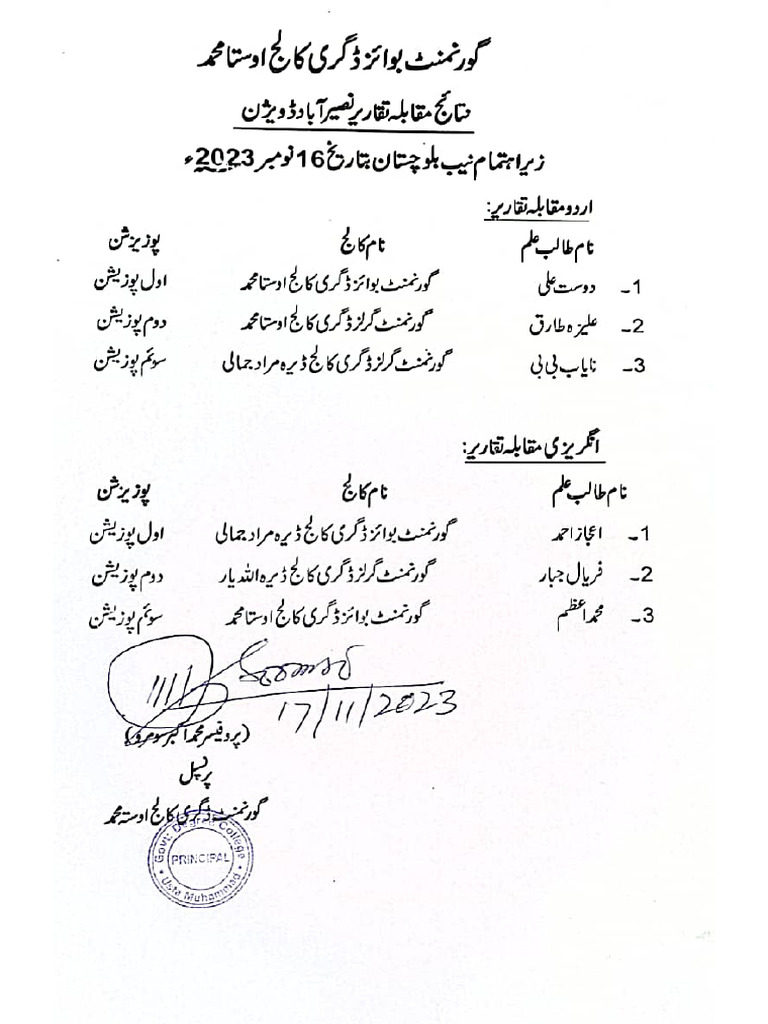 گورنمنٹ بوائز ڈگری کالج اوستا محمد
نتائج مقابلہ تقاریر نصیر آباد ڈویژن
زیر اہتمام نیب بلوچستان بتاریخ 16 نومبر 2023ء
اردو مقابلہ تقاریر:
نام طالب علم نام کالج پوزیژشن
1۔ دوست علی گورنمنٹ بوائز ڈگری کالج اوستا محمد اول پوزیشن
2۔ علیزہ طارق گورنمنٹ گرلز ڈگری کالج اوستا محمد دوم پوزیشن
3۔ نایاب بی بی گورنمنٹ گرلز ڈگری کالج ڈیرہ مراد جمالی سوئم پوزیشن
انگریزی مقابلہ تقاریر:
نام طالب علم نام کالج پوزیژشن
1۔ اعجاز احمد گورنمنٹ بوائز ڈگری کالج ڈیرہ مراد جمالی اول پوزیشن
2۔ فریال جبار گورنمنٹ گرلز ڈگری کالج ڈیرہ اللہ یار دوم پوزیشن
3۔ محمد اعظم گورنمنٹ بوائز ڈگری کالج اوستا محمد سوئم پوزیشن
17/11/2023
(پروفیسر محمد اکبر سومرو)
پرنسپل
گورنمنٹ ڈگری کالج اوستہ محمد
Govt: Degree College
PRINCIPAL
Usta Muhammad